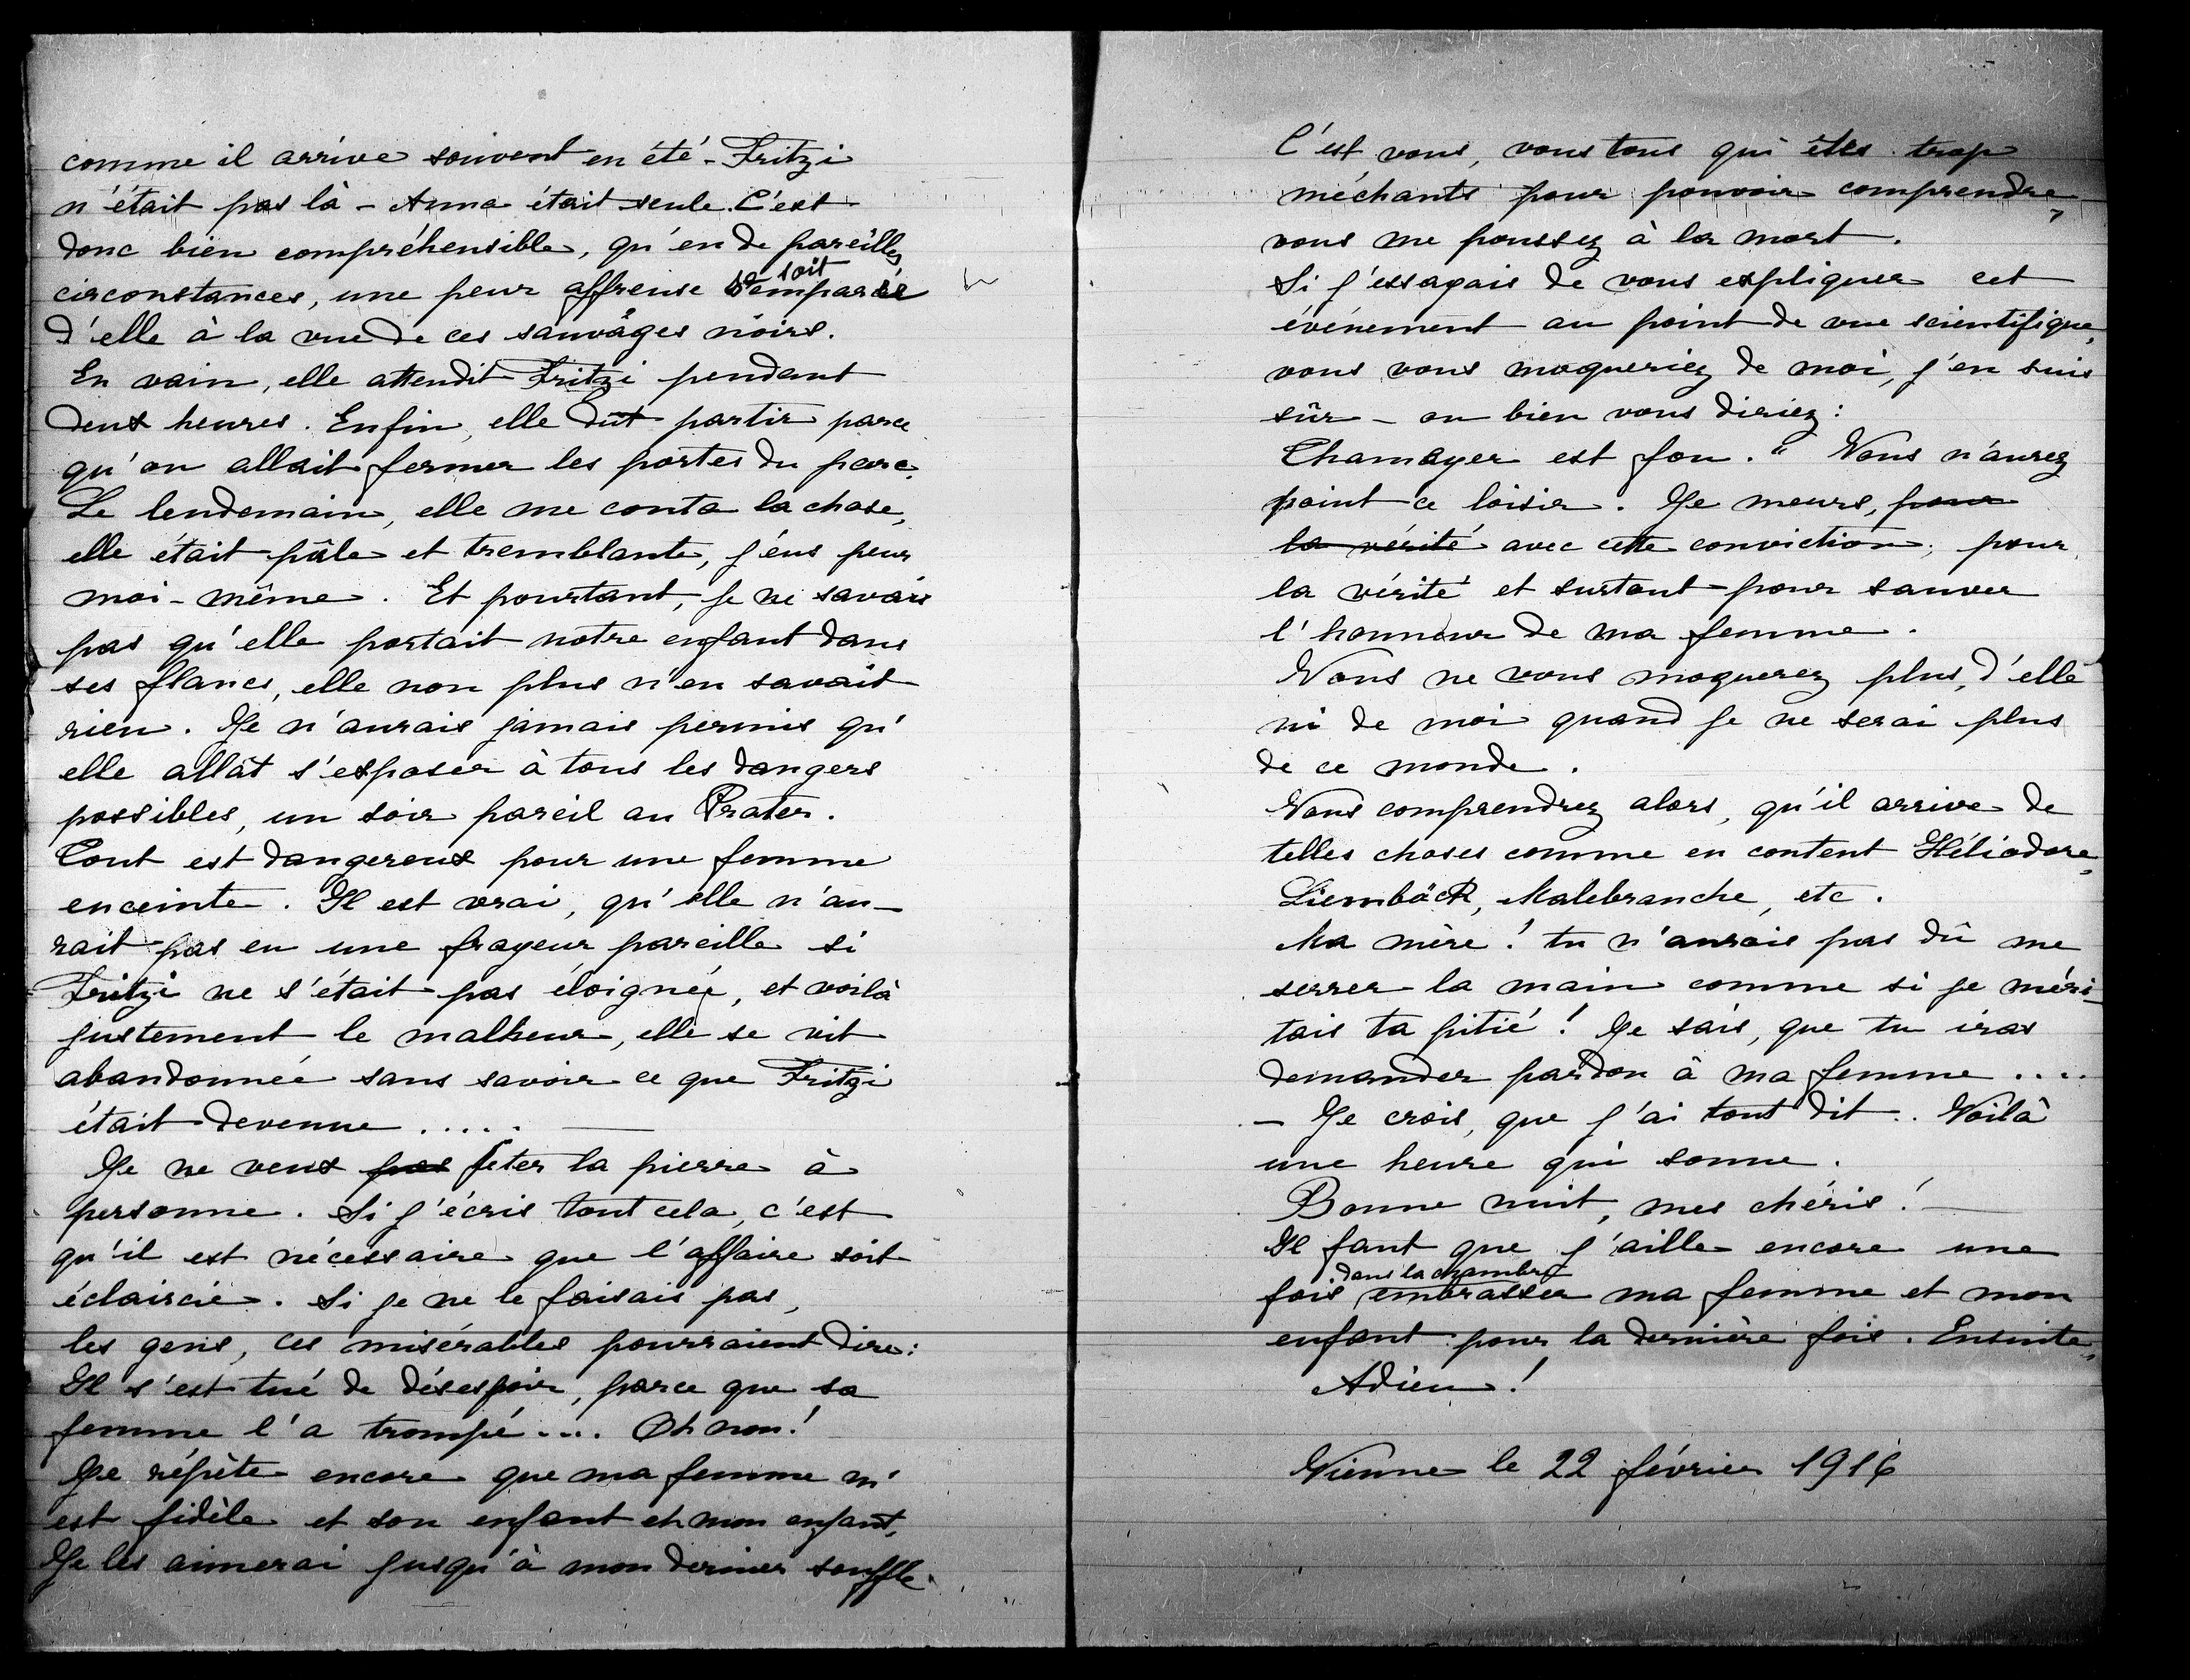 comme il arrive souvent en été - Fritzi
n'était pas là - Anna était seule. C'est
donc bien compréhensible, qu'en de pareilles
soit
circonstances, une peur affreuse s'emparée
d'elle à la vue de ces sauvages noirs.
En vain, elle attendit Fritzi pendant
deux heures. Enfin, elle dut partir parce
qu'on allait fermer les portes du parc.
Le lendemain, elle me conta la chose,
elle était pâle et tremblante, j'eus peur
moi-même. Et pourtant, je ne savais
pas qu'elle portait notre enfant dans
ses flancs, elle non plus n'en savait
rien. Je n'aurais jamais permis qu'
elle allât s'exposer à tous les dangers
possibles, un soir pareil au Prater.
Tout est dangereux pour une femme
enceinte. Il est vrai, qu'elle n'au-
rait pas eu une frayeur pareille si
Fritzi ne s'était pas éloignée, et voilà
justement le malheur, elle se vit
abandonnée sans savoir ce que Fritzi
était devenue .....
Je ne veux pas jeter la pierre à
personne. Si j'écris tout cela, c'est
qu'il est nécessaire que l'affaire soit
éclaircie. Si je ne le faisais pas,
les gens, ces misérables pourraient dire:
Il s'est tué de désespoir, parce que sa
femme l'a trompé.... Oh non!
Je répète encore que ma femme m'
est fidèle et son enfant est mon enfant,
Je les aimerai jusqu'à mon dernier souffle.
C'est vous, vous tous qui êtes trop
méchants pour pouvoir comprendre,
vous me poussez à la mort.
Si j'essayais de vous expliquer cet
événement au point de vue scientifique,
vous vous moqueriez de moi, j'en suis
sûr - ou bien vous diriez:
Chamayer est fou." Vous n'aurez
point ce loisir. Je meurs, pour
la vérité avec cette conviction, pour
la vérité et surtout pour sauver
l'honneur de ma femme.
Vous ne vous moquerez plus, d'elle
ni de moi quand je ne serai plus
de ce monde.
Vous comprendrez alors, qu'il arrive de
telles choses comme en content Héliodore,
Liemböck, Malebranche, etc.
Ma mère! tu n'aurais pas dû me
serrer la main comme si je méri-
tais ta pitié! Je sais, que tu iras
demander pardon à ma femme ....
- Je crois, que j'ai tout dit. Voilà
une heure qui sonne.
Bonne nuit, mes chéris!
Il faut que j'aille encore une
dans la chambre
fois embrasser ma femme et mon
enfant pour la dernière fois. Ensuite,
Adieu!
Vienne le 22 février 1916